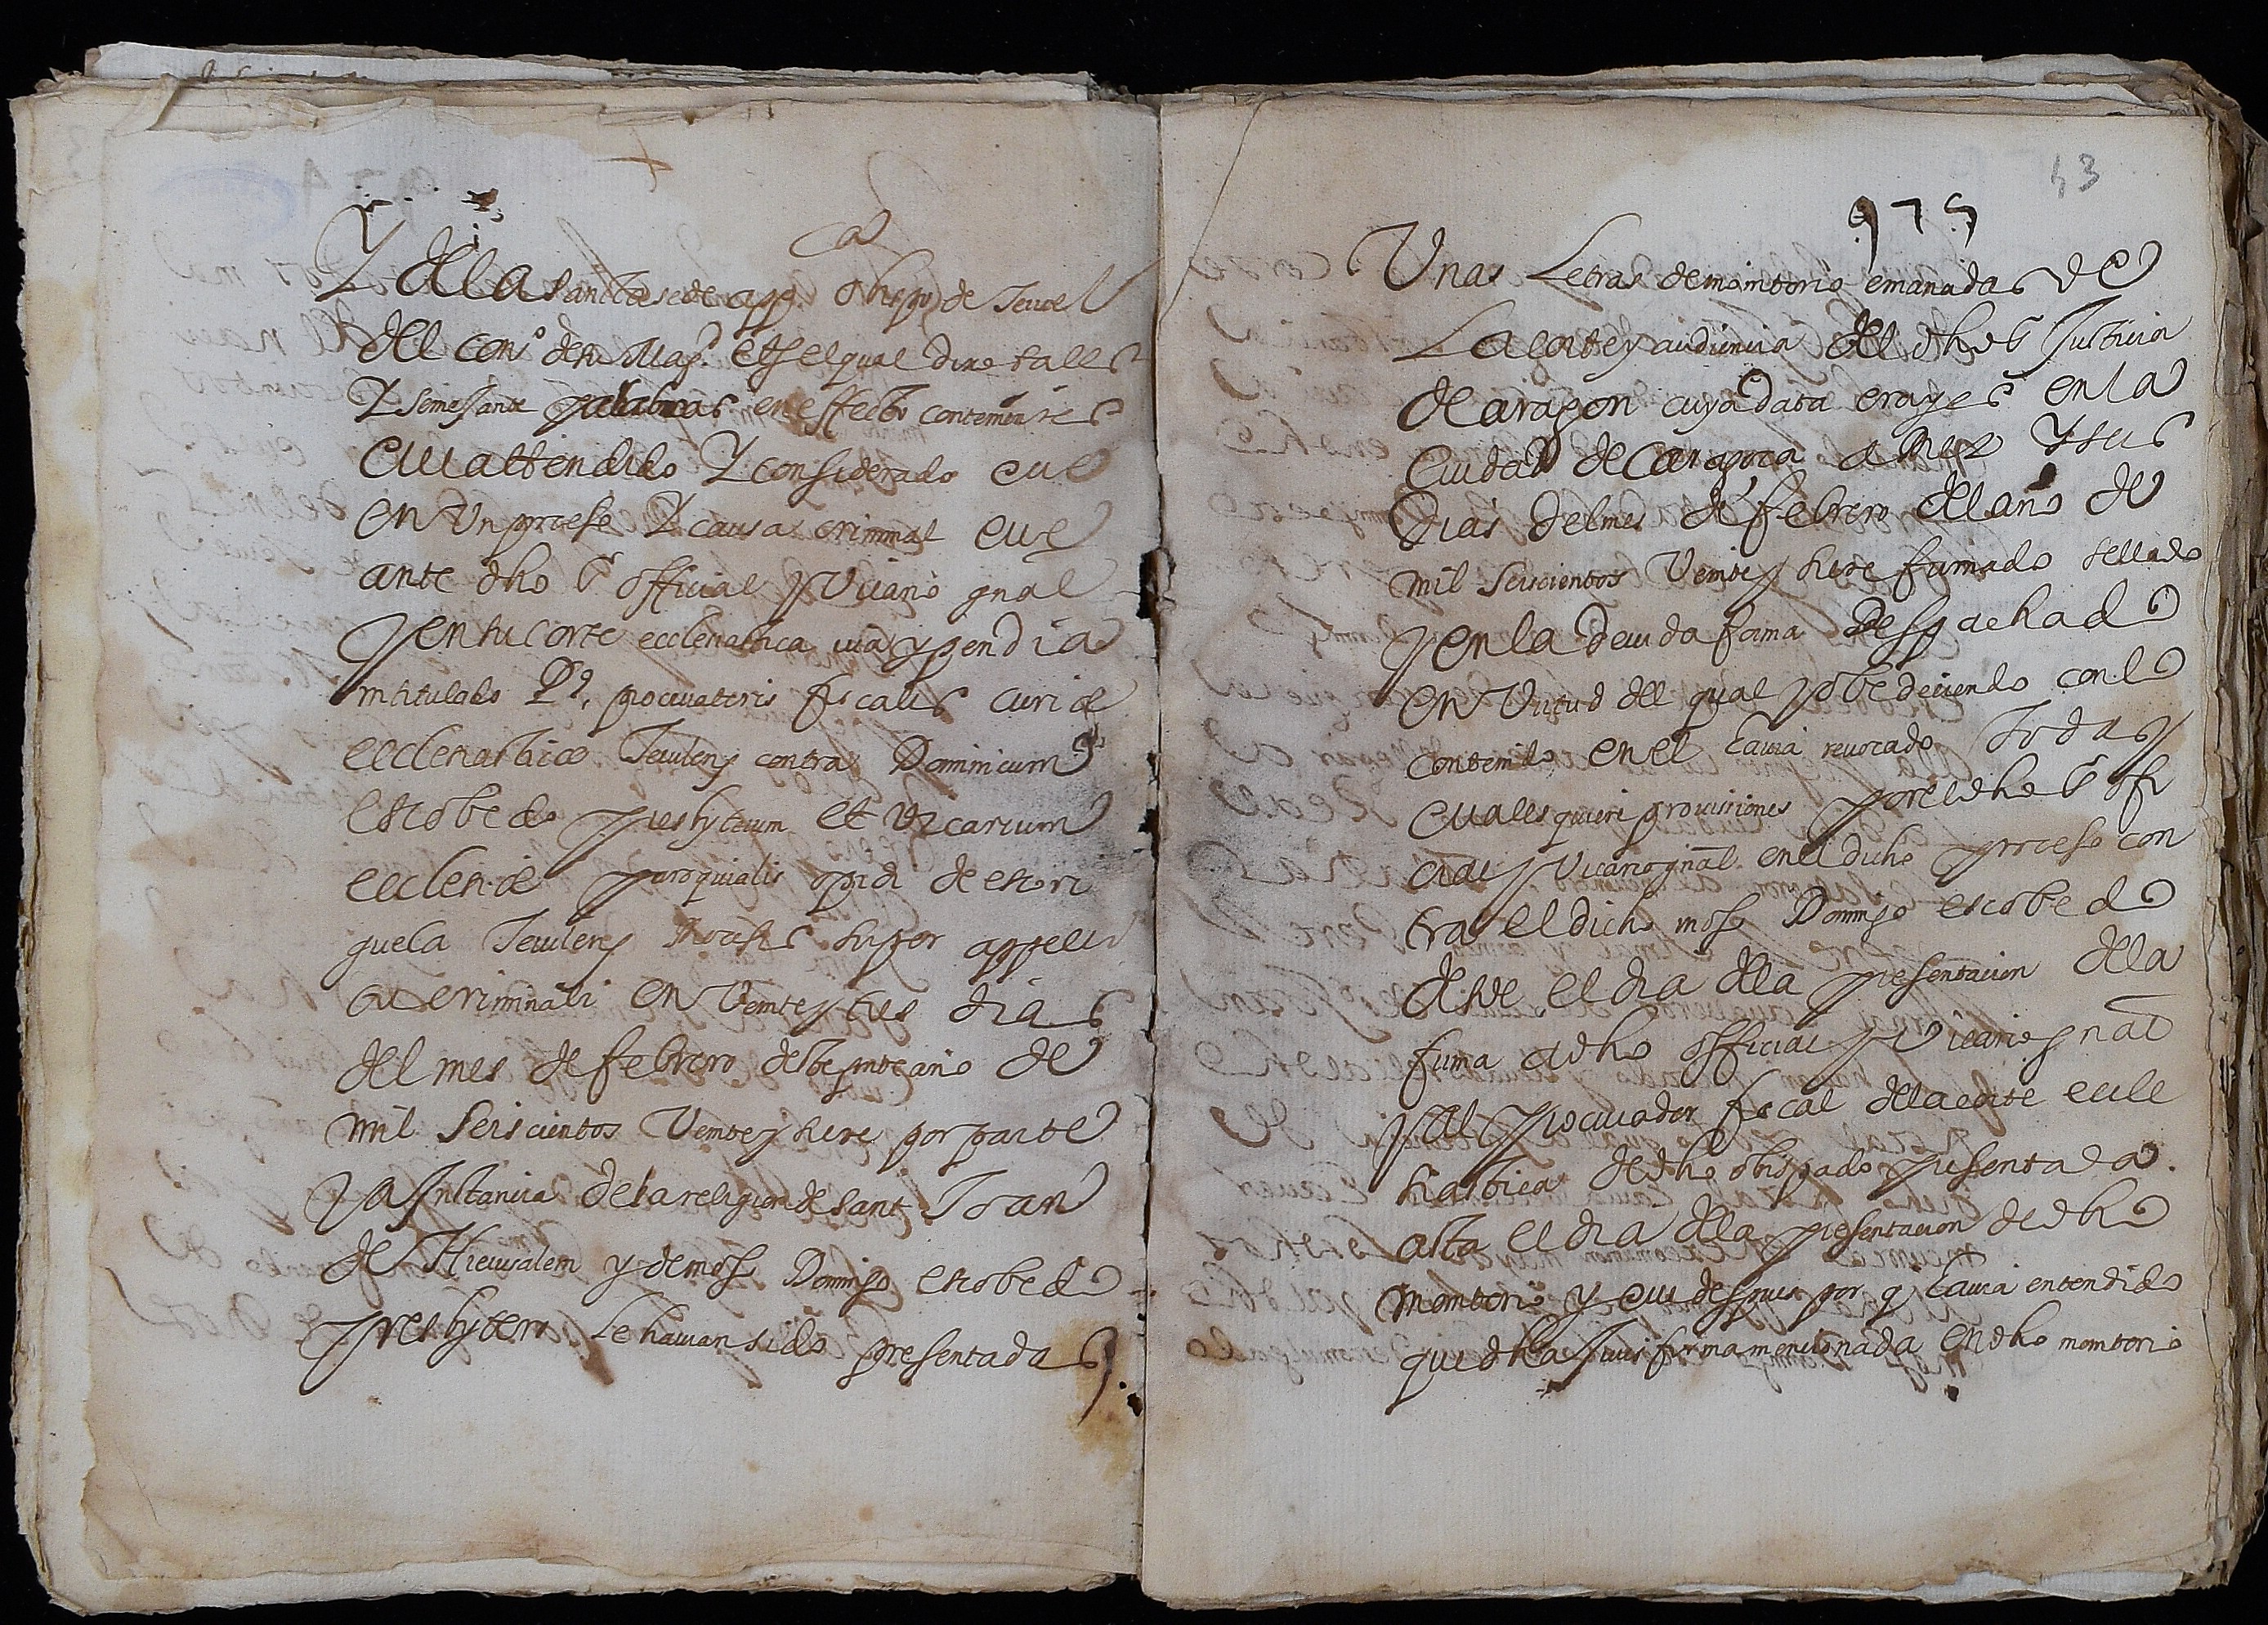 Y de la Sancta sede app. Obispo de Teruel
del cons.º de su Mag.d etc el qual dixo tales
Y semejante palabras en effecto contenientes
Que attendido Y considerado que
en Un proceso Y causa criminal que
ante dho S.r official y Vicario gnal
y en su corte ecclesiastica iua y pendia
intitulado P.º procuratoris fiscalis curiæ
ecclesiasticæ Teulens contra Dominicum
escobedo presbyterum et vicarium
ecclesiæ parroquialis opidi de escori
guela Teulens super appellitu
criminali en Veinte y tres dias
del mes de febrero deste pnte año de
mil Seiscientos Veinte y siete por parte
y a Instancia de la religion de Sant Joan
de Hierusalem y de moss Domingo escobedo
presbytero le hauian sido presentadas
43
975
Unas Letras de monitorio emanadas de
La corte y audiencia del dho S.r Justicia
de aragon cuya data era y es en la
Ciudad de Caragoça a diez Y seis
Dias del mes de febrero del año de
mil Seiscientos Veinte y siete firmado sellado
y en la deuida forma Despachado
en Virtud del qual y obedeciendo con lo
contenido en el hauia reuocado Todas y
Quales quiere prouisiones por el dho S.r ofi
cial y Vicario gnal en el dicho proceso con
tra el dicho moss Domingo escobedo
desde el dia de la presentacion de la
firma a dho official y Vicario gnal
y al procurador fiscal de la corte eccle
siastica de dho obispado presentada
asta el dia de la presentacion de dho
monitorio y que despues por q hauia entendido
que dha Juris firma mencionada en dho monitorio